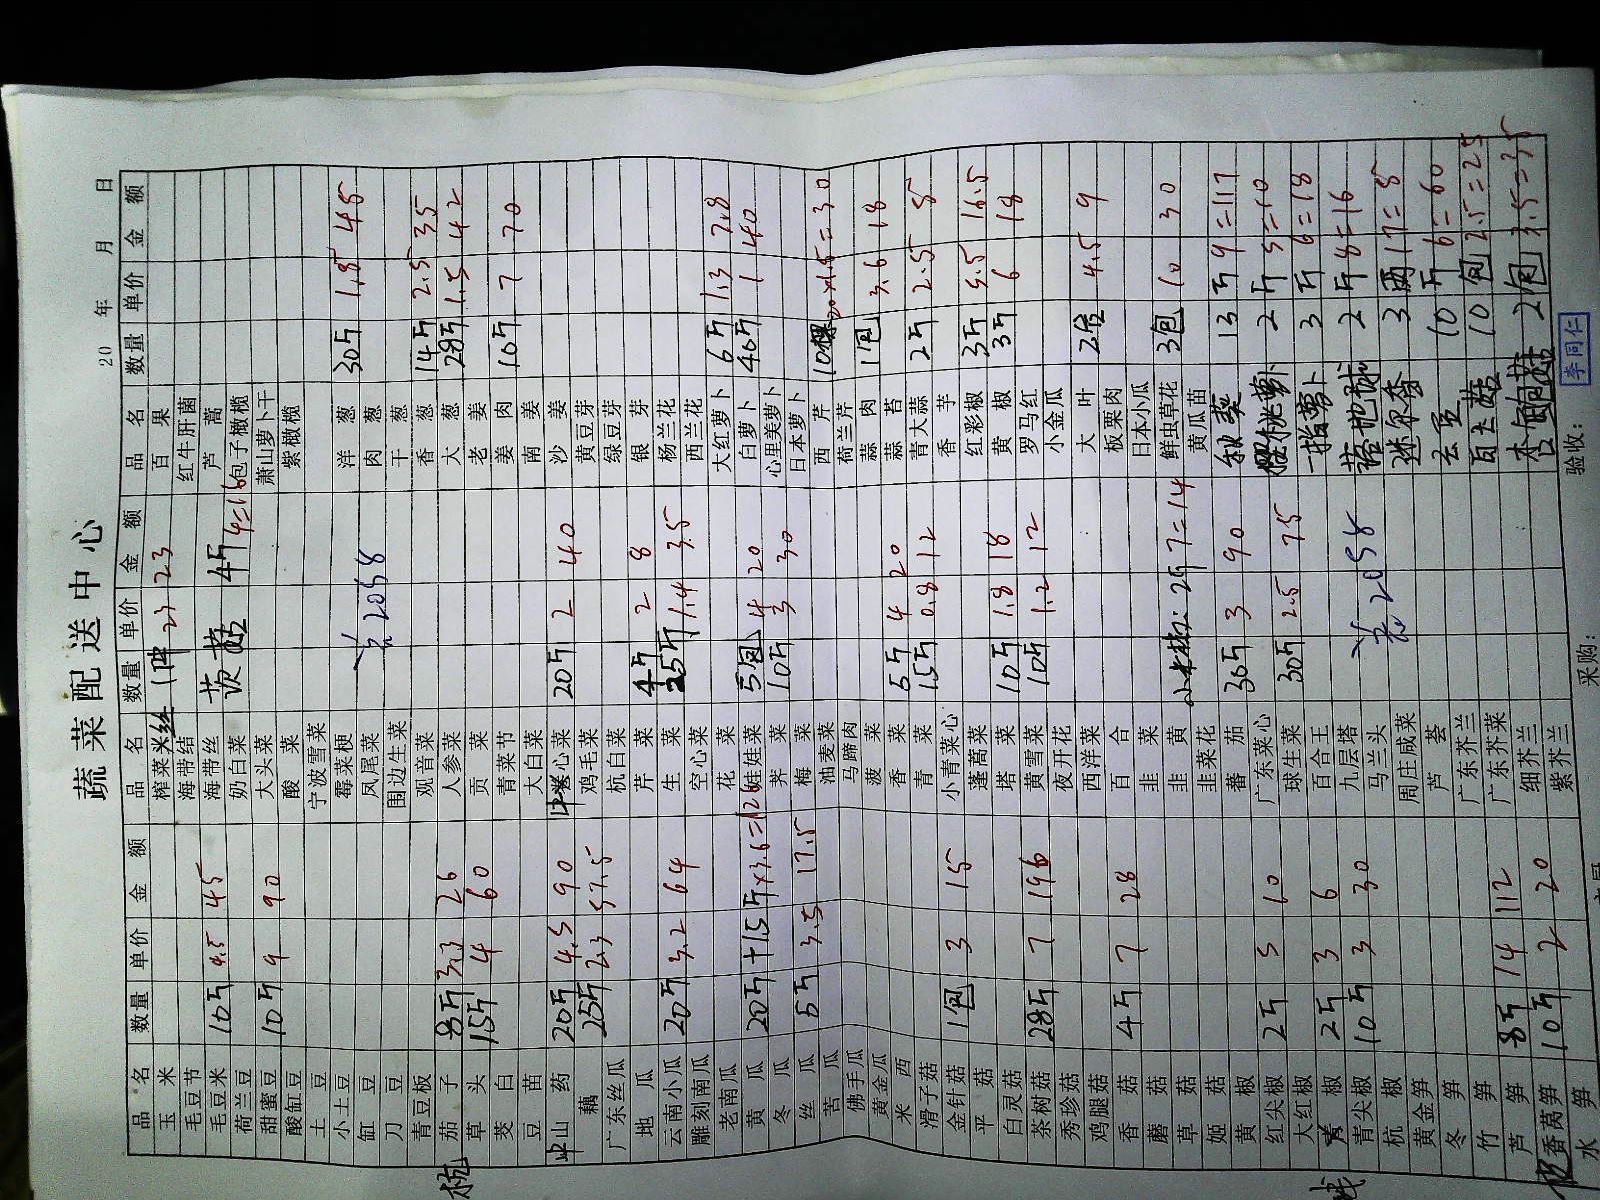 蔬菜配送中心
20 年 月 日
品名 数量 单价 金额 品名 数量 单价 金额 品名 数量 单价 金额
玉米 榨菜丝 1件 23 23 百果
毛豆节 海带结 红牛肝菌
毛豆米 10斤 4.5 45 海带丝 茨菇 4斤 4=16 芦蒿
荷兰豆 奶白菜 包子橄榄
甜蜜豆 10斤 9 90 大头菜 萧山萝卜干
酸缸豆 酸菜 紫橄榄
土豆 宁波雪菜
小土豆 霉菜梗 洋葱 30斤 1.5 45
缸豆 凤尾菜 2058 肉葱
刀豆 围边生菜 干葱
青豆板 观音菜 香葱 14斤 2.5 35
杭茄子 8斤 3.3 26 人参菜 大葱 28斤 1.5 42
草头 15斤 4 60 贡菜 老姜
茭白 青菜节 姜肉 10斤 7 70
豆苗 大白菜 南姜
山药 20斤 4.5 90 心菜 20斤 2 40 沙姜
藕 25斤 2.3 57.5 鸡毛菜 黄豆芽
广东丝瓜 杭白菜 绿豆芽
地瓜 芹菜 4斤 2 8 银芽
云南小瓜 20斤 3.2 64 生菜 25斤 1.4 35 杨兰花
雕刻南瓜 空心菜 西兰花
老南瓜 花菜 大红萝卜 6斤 1.3 7.8
黄瓜 20斤+15斤×3.6=126 娃娃菜 5包 4 20 白萝卜 40斤 1 40
冬瓜 荠菜 10斤 3 30 心里美萝卜
丝瓜 5斤 3.5 17.5 梅菜 日本萝卜
苦瓜 油麦菜 西芹 10棵 20×1.5=30
佛手瓜 马蹄肉 荷兰芹
黄金瓜 菠菜 蒜肉 1包 3.6 18
米西 香菜 5斤 4 20 蒜苔
滑子菇 青菜 15斤 0.8 12 青大蒜 2斤 2.5 5
金针菇 1包 3 15 小青菜心 香芋
平菇 蓬蒿菜 红彩椒 3斤 5.5 16.5
白灵菇 塔菜 10斤 1.8 18 黄椒 3斤 6 18
茶树菇 28斤 7 196 黄雪菜 10斤 1.2 12 罗马红
秀珍菇 夜开花 小金瓜
鸡腿菇 西洋菜 大叶 2 4.5 9
香菇 4斤 7 28 百合 板栗肉
蘑菇 韭菜 日本小瓜
草菇 韭黄 2斤 7=14 鲜虫草花 3包 10 30
姬菇 韭菜花 黄瓜苗
黄椒 蕃茄 30斤 3 90 秋葵 13斤 9=117
红尖椒 2斤 5 10 广东菜心 樱桃萝卜 2斤 5=10
大红椒 球生菜 30斤 2.5 75 一指萝卜 3斤 6=18
青椒 2斤 3 6 百合王 2斤 8=16
线青尖椒 10斤 3 30 九层塔 2058 迷尔香 3两 17=5
杭椒 马兰头 10斤 6=60
黄金笋 周庄咸菜 10包 2.5=25
冬笋 芦荟 杏鲍菇 2包 3.5=35
竹笋 广东芥兰
芦笋 8斤 14 112 广东芥菜
香莴笋 10斤 2 20 细芥兰
水笋 紫芥兰
采购： 验收： 李同仁